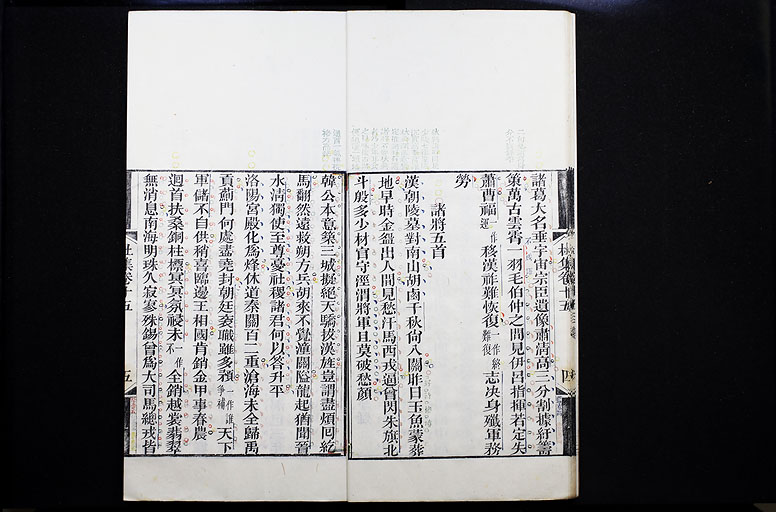 諸葛大名垂宇宙宗臣遺像肅淸高三分割據紆籌
策萬古雲霄一羽毛伯仲之間見伊呂指揮若定失
蕭曹福一作運移漢祚難恢復一作終難復志决身殲軍務
勞
諸將五首
漢朝陵墓對南山胡鹵千秋尙入關昨日玉魚蒙葬
地早時金盌出人間見愁汗馬西戎逼曾閃朱旗北
斗殷多少材官守涇渭將軍且莫破愁顏
杜集卷十五
四
韓公本意築三城擬絕天驕拔漢旌豈謂盡煩回紇
馬翻然遠救朔方兵胡來不覺潼關隘龍起猶聞晉
水淸獨使至尊憂社稷諸君何以答升平
洛陽宮殿化爲烽休道秦關百二重滄海未全歸禹
貢薊門何處盡堯封朝廷袞職雖多預一作誰爭補天下
軍儲不自供稍喜臨邊王相國肯銷金甲事春農
迴首扶桑銅柱標冥冥氛祲未一作不全銷越裳翡翠
無消息南海明珠久寂寥殊錫曾爲大司馬總戎皆
杜集卷十五
五